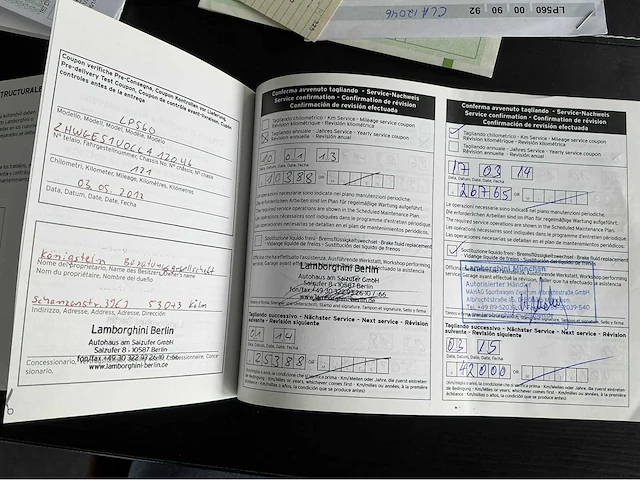 LP560 00 90 92
CLA12046
STRUCTURALE
Coupon verifiche Pre-Consegna, Coupon Kontrollen vor Lieferung,
Pre-delivery Test Coupon, Coupon de contrôle avant-livraison, Cupón
controles antes de la entrega
LP560
Modello, Modell, Model, Modèle, Modelo
N° telaio, Fahrgestellnummer, Chassis No. Chassis N°, N° chasis
121
Chilometri, Kilometer, Mileage, Kilomètres, Kilómetros
03.05.2012
Data, Datum, Date, Date, Fecha
Königstein Beratungsgesellschaft
Nom du propriétaire, Nombre del dueño
53043 Köln
Indirizzo, Adresse, Address, Adresse, Dirección
Lamborghini Berlin
Autohaus am Saizufer GmbH
Salzufer 8 - 10587 Berlin
www.lamborghini-berlin.de
Conferma avvenuto tagliando - Service-Nachweis
Service confirmation - Confirmation de révision
Confirmación de revisión efectuada
Tagliando chilometrico - Km Service - Mileage service coupon
Révision kilométrique - Revisión kilométrica
Tagliando annuale - Jahres Service - Yearly service coupon
Révision annuelle - Revisión anual
10 01 13
Data, Datum, Date, Date, Fecha
10388 or
Le operazioni necessarie sono indicate nel piano manutenzioni periodiche.
Die erforderlichen Arbeiten sind im Plan für regelmäßige Wartung aufgeführt.
The required service operations are shown in the Scheduled Maintenance Plan.
Les opérations nécessaires sont indiquées dans le programme d'entretien périodique.
Las operaciones necesarias se detallan en el plan de mantenimientos periódicos.
Sostituzione liquido freni - Bremsflüssigkeitswechsel - Brake fluid replacement
Vidange liquide de freins - Sustitución del líquido de frenos
Lamborghini Berlin
Autohaus am Saizufer GmbH
Salzufer 8 - 10587 Berlin
www.lamborghini-berlin.de
Tagliando successivo - Nächster Service - Next service - Révision
suivante - Revisión siguiente
01 14
Data, Datum, Date, Date, Fecha
25388 or
Conferma avvenuto tagliando - Service-Nachweis
Service confirmation - Confirmation de révision
Confirmación de revisión efectuada
Tagliando chilometrico - Km Service - Mileage service coupon
Révision kilométrique - Revisión kilométrica
Tagliando annuale - Jahres Service - Yearly service coupon
Révision annuelle - Revisión anual
17 03 14
Data, Datum, Date, Date, Fecha
26765 or
Le operazioni necessarie sono indicate nel piano manutenzioni periodiche.
Die erforderlichen Arbeiten sind im Plan für regelmäßige Wartung aufgeführt.
The required service operations are shown in the Scheduled Maintenance Plan.
Les opérations nécessaires sont indiquées dans le programme d'entretien périodique.
Las operaciones necesarias se detallan en el plan de mantenimientos periódicos.
Sostituzione liquido freni - Bremsflüssigkeitswechsel - Brake fluid replacement
Vidange liquide de freins - Sustitución del líquido de frenos
Lamborghini München
Autorisierter Händler
Tagliando successivo - Nächster Service - Next service - Révision
suivante - Revisión siguiente
03 15
Data, Datum, Date, Date, Fecha
42000 or